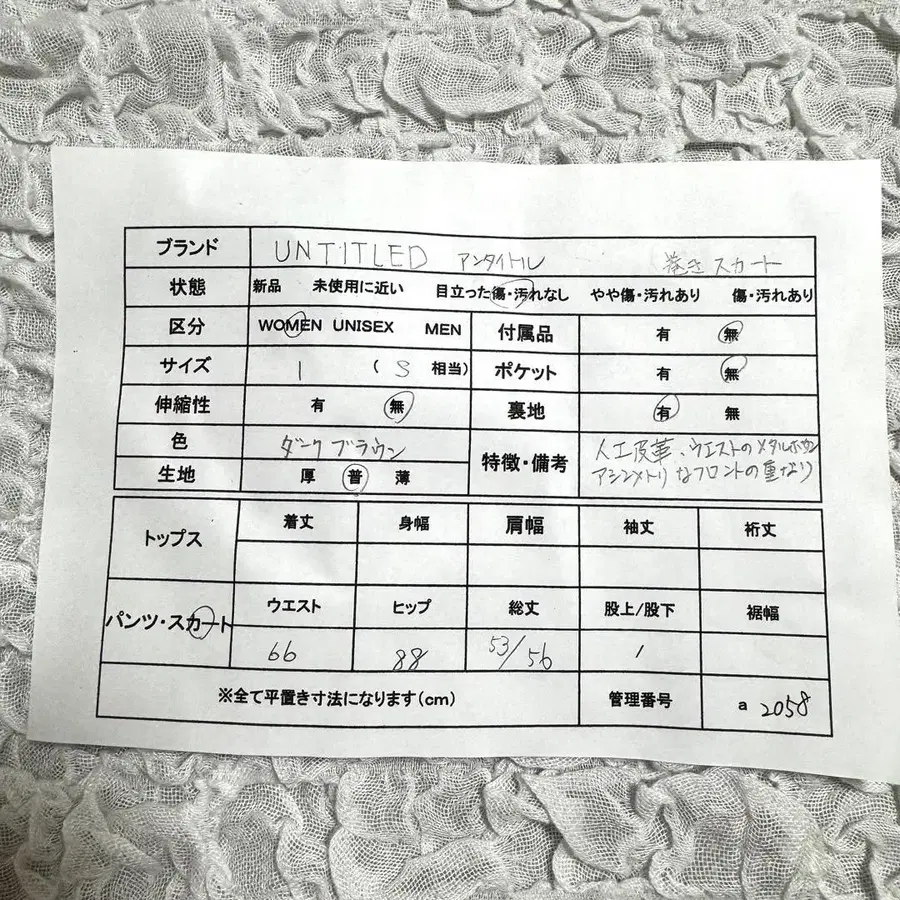 ブランド UNTITLED アンタイトル 巻き スカート
状態 新品 未使用に近い 目立った傷・汚れなし やや傷・汚れあり 傷・汚れあり
区分 WOMEN UNISEX MEN 付属品 有 無
サイズ 1 (S 相当) ポケット 有 無
伸縮性 有 無 裏地 有 無
色 ダークブラウン 特徴・備考 人工皮革、ウエストのメタルボタン
アシンメトリなフロントの重なり
生地 厚 普 薄
トップス 着丈 身幅 肩幅 袖丈 裄丈
パンツ・スカート ウエスト ヒップ 総丈 股上/股下 裾幅
66 88 53/56 /
※全て平置き寸法になります(cm) 管理番号 a 2058